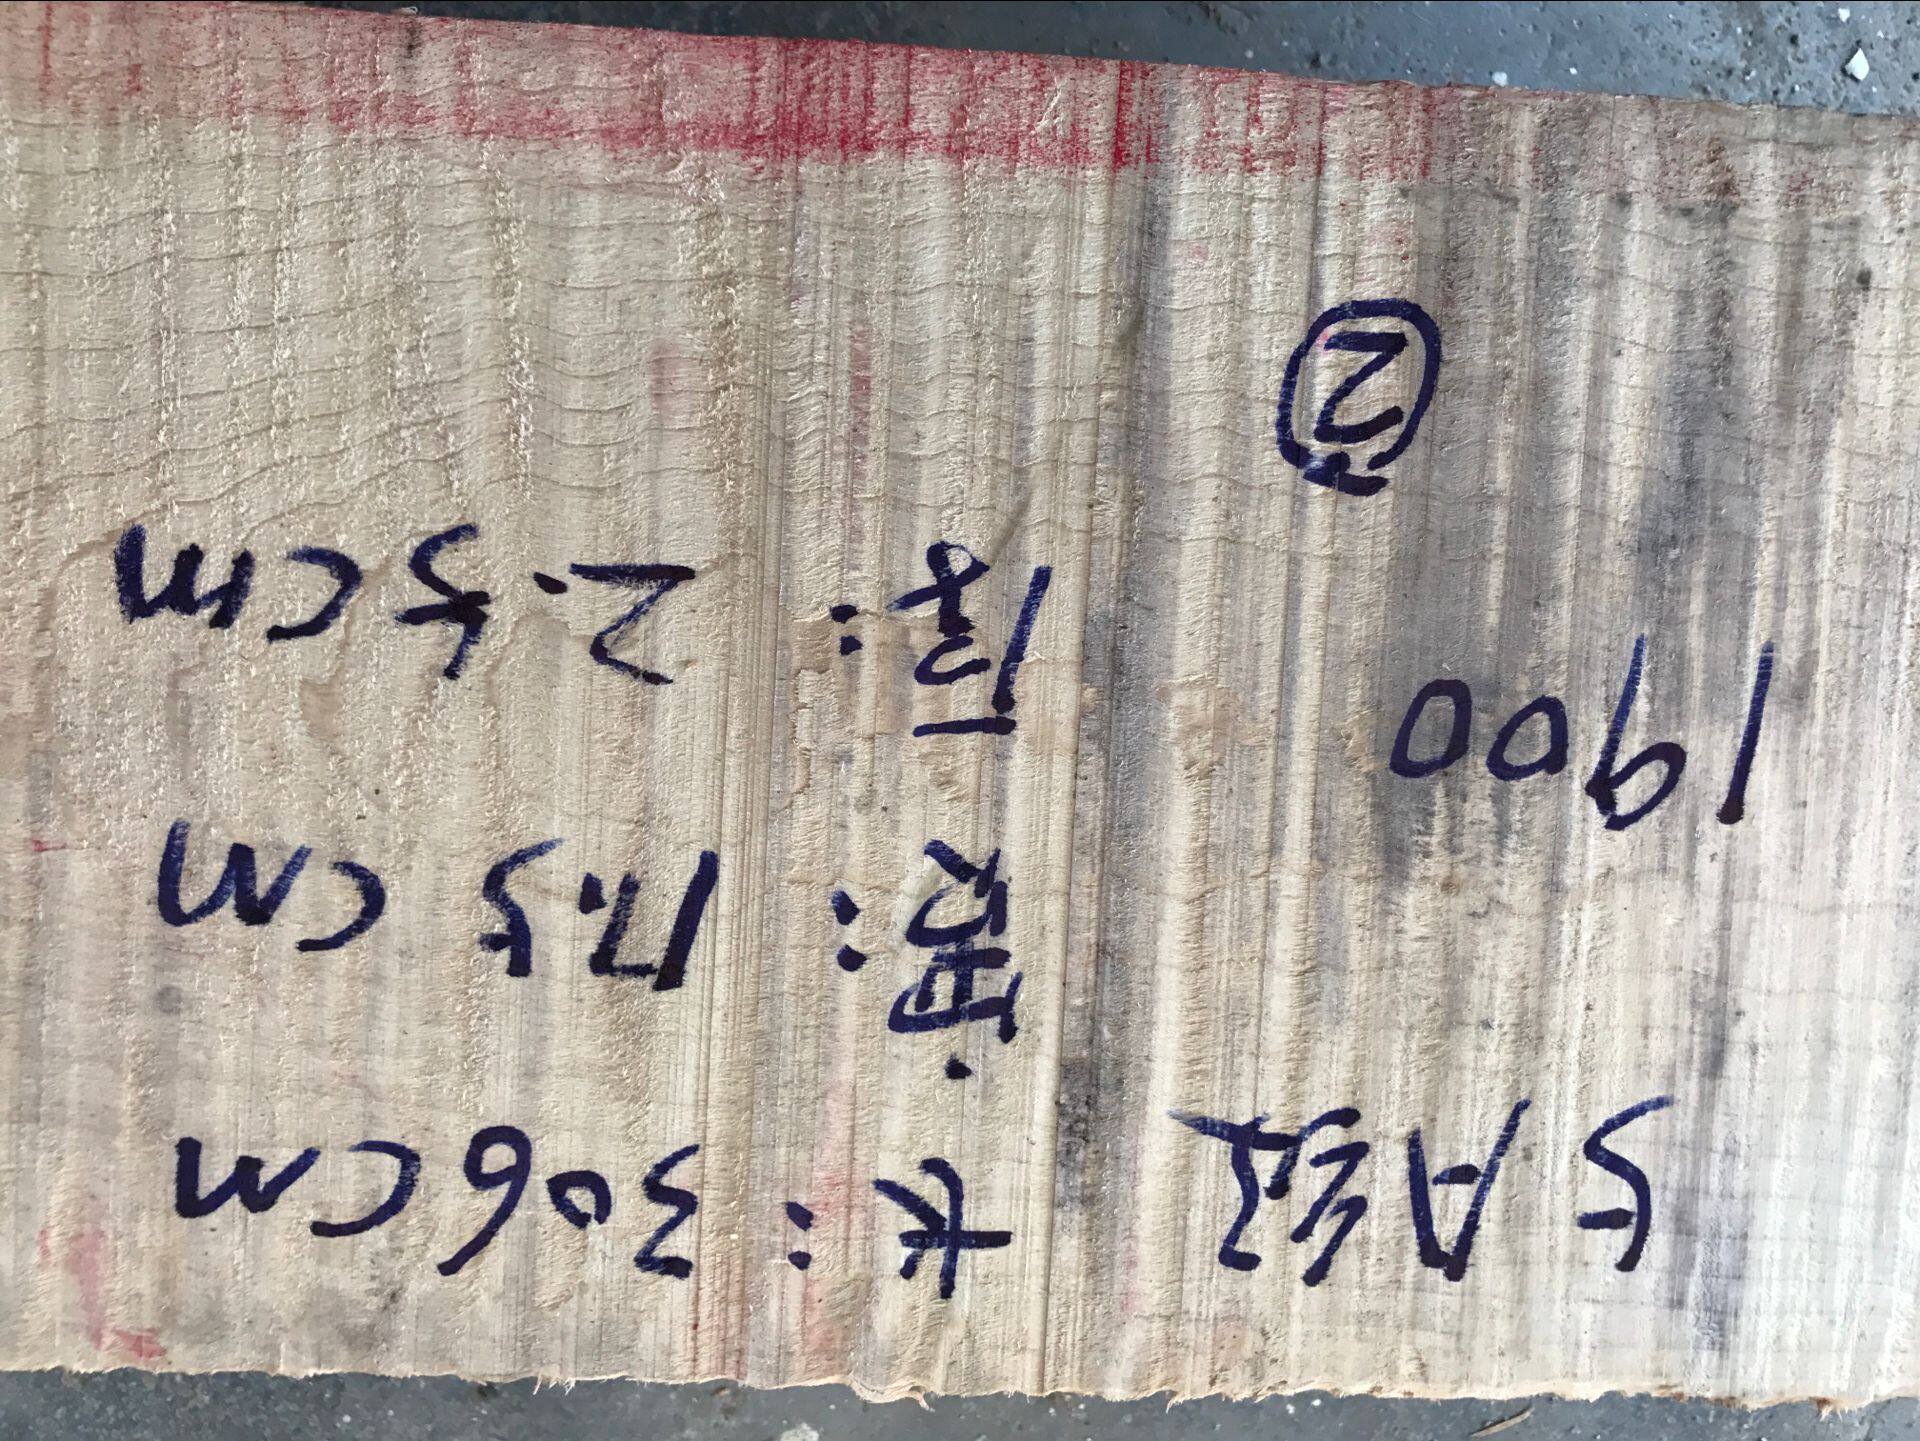 5A级
1900
②
长：306cm
宽：17.5cm
厚：2.5cm